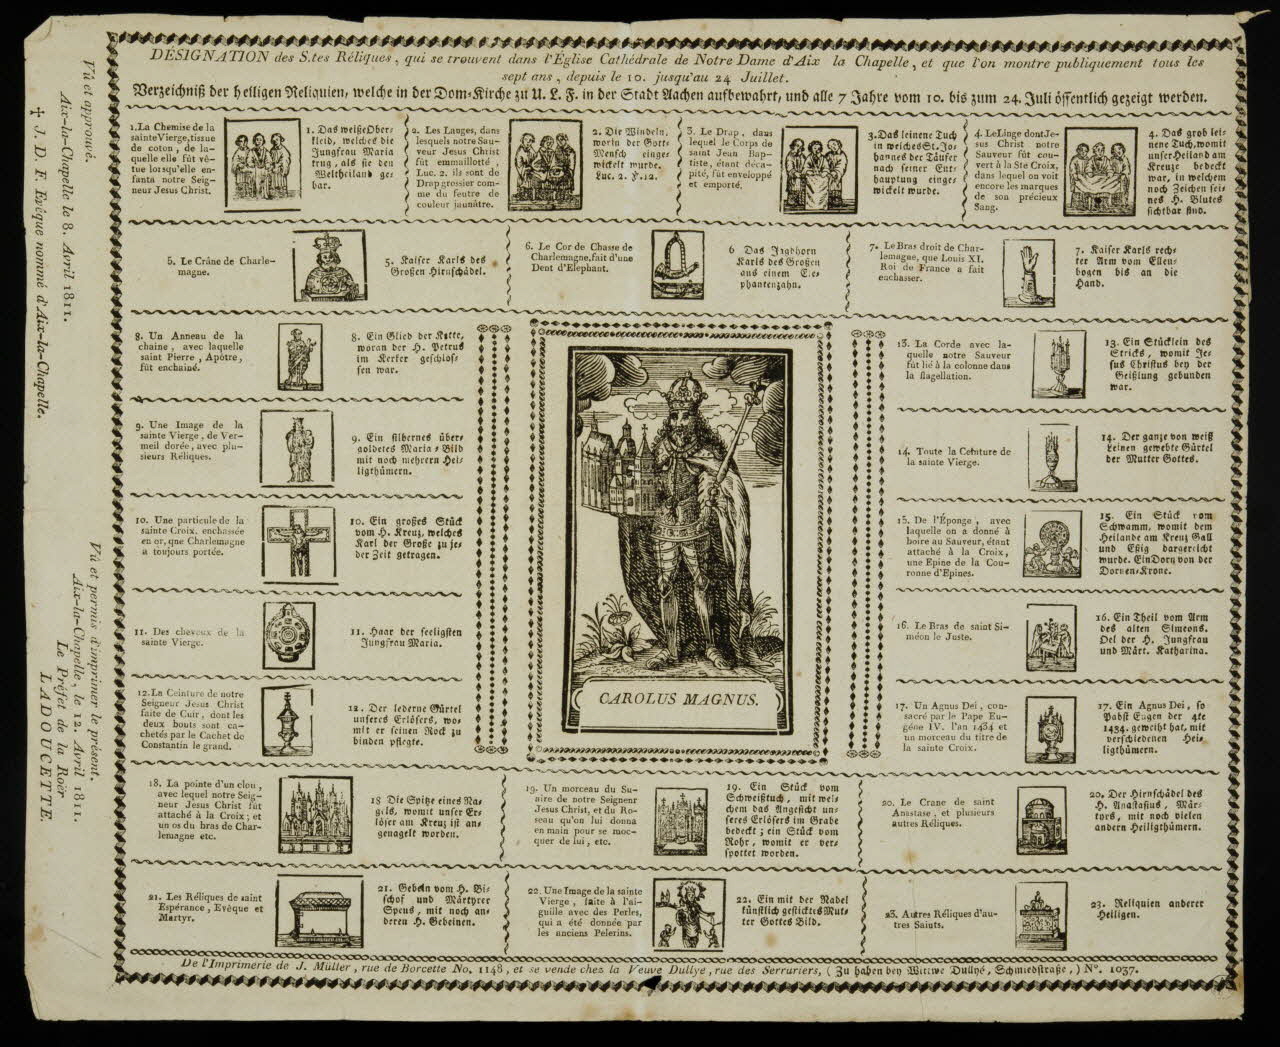 DÉSIGNATION des S.tes Réliques, qui se trouvent dans l'Église Cathédrale de Notre Dame d'Aix la Chapelle, et que l'on montre publiquement tous les
sept ans, depuis le 10. jusqu'au 24 Juillet.
Verzeichniß der heiligen Reliquien, welche in der Dom-Kirche zu U. L. F. in der Stadt Aachen aufbewahrt, und alle 7 Jahre vom 10. bis zum 24. Juli öffentlich gezeigt werden.
1. La Chemise de la
sainte Vierge, tissue
de coton, de la-
quelle elle fût vê-
tue lorsqu'elle en-
fanta notre Seig-
neur Jesus Christ.
1. Das weiße Ober-
kleid, welches die
Jungfrau Maria
trug, als sie den
Weltheiland ge-
bar.
2. Les Langes, dans
lesquels notre Sau-
veur Jesus Christ
fût emmaillotté,
Luc. 2. ils sont de
Drap grossier com-
me du feutre de
couleur jaunâtre.
2. Die Windeln,
worin der Gott-
Mensch einge-
wickelt wurde.
Luc. 2. v. 12.
3. Le Drap, dans
lequel le Corps de
saint Jean Bap-
tiste, étant déca-
pité, fût enveloppé
et emporté.
3. Das leinene Tuch
in welches St. Jo-
hannes der Täufer
nach seiner Ent-
hauptung einge-
wickelt wurde.
4. Le Linge dont Je-
sus Christ notre
Sauveur fût cou-
vert à la Ste Croix,
dans lequel on voit
encore les marques
de son précieux
Sang.
4. Das grob lei-
nene Tuch, womit
unser Heiland am
Kreuze bedeckt
war, in welchem
noch Zeichen sei-
nes H. Blutes
sichtbar sind.
5. Le Crâne de Charle-
magne.
5. Kaiser Karls des
Großen Hirnschädel.
6. Le Cor de Chasse de
Charlemagne, fait d'une
Dent d'Elephant.
6 Das Jagdhorn
Karls des Großen
aus einem Ele-
phantenzahn.
7. Le Bras droit de Char-
lemagne, que Louis XI.
Roi de France a fait
enchasser.
7. Kaiser Karls rech-
ter Arm vom Ellen-
bogen bis an die
Hand.
8. Un Anneau de la
chaine, avec laquelle
saint Pierre, Apôtre,
fût enchainé.
8. Ein Glied der Kette,
woran der H. Petrus
im Kerker geschlos-
sen war.
9. Une Image de la
sainte Vierge, de Ver-
meil dorée, avec plu-
sieurs Réliques.
9. Ein silbernes über-
goldetes Maria-Bild
mit noch mehrern Hei-
ligthümern.
10. Une particule de la
sainte Croix, enchassée
en or, que Charlemagne
a toujours portée.
10. Ein großes Stück
vom H. Kreuz, welches
Karl der Große zu je-
der Zeit getragen.
11. Des cheveux de la
sainte Vierge.
11. Haar der seeligsten
Jungfrau Maria.
12. La Ceinture de notre
Seigneur Jesus Christ
faite de Cuir, dont les
deux bouts sont ca-
chetés par le Cachet de
Constantin le grand.
12. Der lederne Gürtel
unsers Erlösers, wo-
mit er seinen Rock zu
binden pflegte.
CAROLUS MAGNUS.
13. La Corde avec la-
quelle notre Sauveur
fût lié à la colonne dans
la flagellation.
13. Ein Stücklein des
Stricks, womit Je-
sus Christus bey der
Geißlung gebunden
war.
14. Toute la Ceinture de
la sainte Vierge.
14. Der ganze von weiß
Leinen gewebte Gürtel
der Mutter Gottes.
15. De l'Éponge, avec
laquelle on a donné à
boire au Sauveur, étant
attaché à la Croix,
une Epine de la Cou-
ronne d'Epines.
15. Ein Stück vom
Schwamm, womit dem
Heilande am Kreuz Gall
und Eßig dargereicht
wurde. Ein Dorn von der
Dornen-Krone.
16. Le Bras de saint Si-
méon le Juste.
16. Ein Theil vom Arm
des alten Simeons.
Oel der H. Jungfrau
und Märt. Katharina.
17. Un Agnus Dei, con-
sacré par le Pape Eu-
géne IV. l'an 1434 et
un morceau du titre de
la sainte Croix.
17. Ein Agnus Dei, so
Pabst Eugen der 4te
1434. geweiht hat, mit
verschiedenen Hei-
ligthümern.
18. La pointe d'un clou,
avec lequel notre Seig-
neur Jesus Christ fût
attaché à la Croix; et
un os du bras de Char-
lemagne etc.
18 Die Spitze eines Na-
gels, womit unser Er-
löser am Kreuz ist an-
genagelt worden.
19. Un morceau du Su-
aire de notre Seigneur
Jesus Christ, et du Ro-
seau qu'on lui donna
en main pour se moc-
quer de lui, etc.
19. Ein Stück vom
Schweißtuch, mit wel-
chem das Angesicht un-
seres Erlösers im Grabe
bedeckt; ein Stück vom
Rohr, womit er ver-
spottet worden.
20. Le Crane de saint
Anastase, et plusieurs
autres Réliques.
20. Der Hirnschädel des
H. Anastasius, Mär-
tyrs, mit noch vielen
andern Heiligthümern.
21. Les Réliques de saint
Espérance, Evêque et
Martyr.
21. Gebein vom H. Bi-
schof und Märtyrer
Speus, mit noch an-
deren H. Gebeinen.
22. Une Image de la sainte
Vierge, faite à l'ai-
guille avec des Perles,
qui a été donnée par
les anciens Pelerins.
22. Ein mit der Nadel
künstlich gesticktes Mut-
ter Gottes Bild.
23. Autres Réliques d'au-
tres Saints.
23. Reliquien anderer
Heiligen.
De l'Imprimerie de J. Müller, rue de Borcette No. 1148, et se vende chez la Veuve Dullye, rue des Serruriers, (Zu haben bey Wittwe Dullyé, Schmiedstraße,) N°. 1037.
Vû et approuvé.
Aix-la-Chapelle le 8. Avril 1811.
† J. D. F. Evêque nommé d'Aix-la-Chapelle.
Vû et permis d'imprimer le présent.
Aix-la-Chapelle, le 12. Avril 1811.
Le Préfet de la Roër
LADOUCETTE.